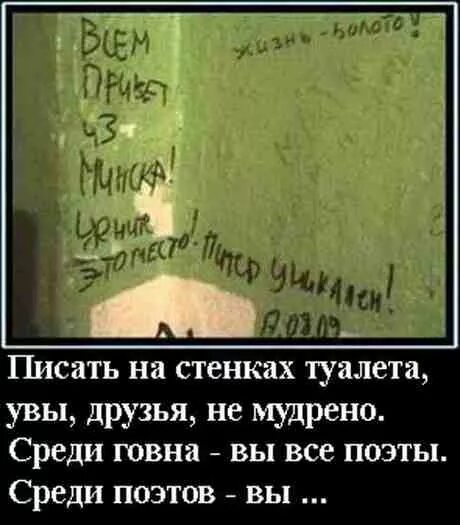 Всем
Привет
из
Минска!
Цените
это место!
жизнь - болото!
Питер уникален!
08.09
Писать на стенках туалета,
увы, друзья, не мудрено.
Среди говна - вы все поэты.
Среди поэтов - вы ...